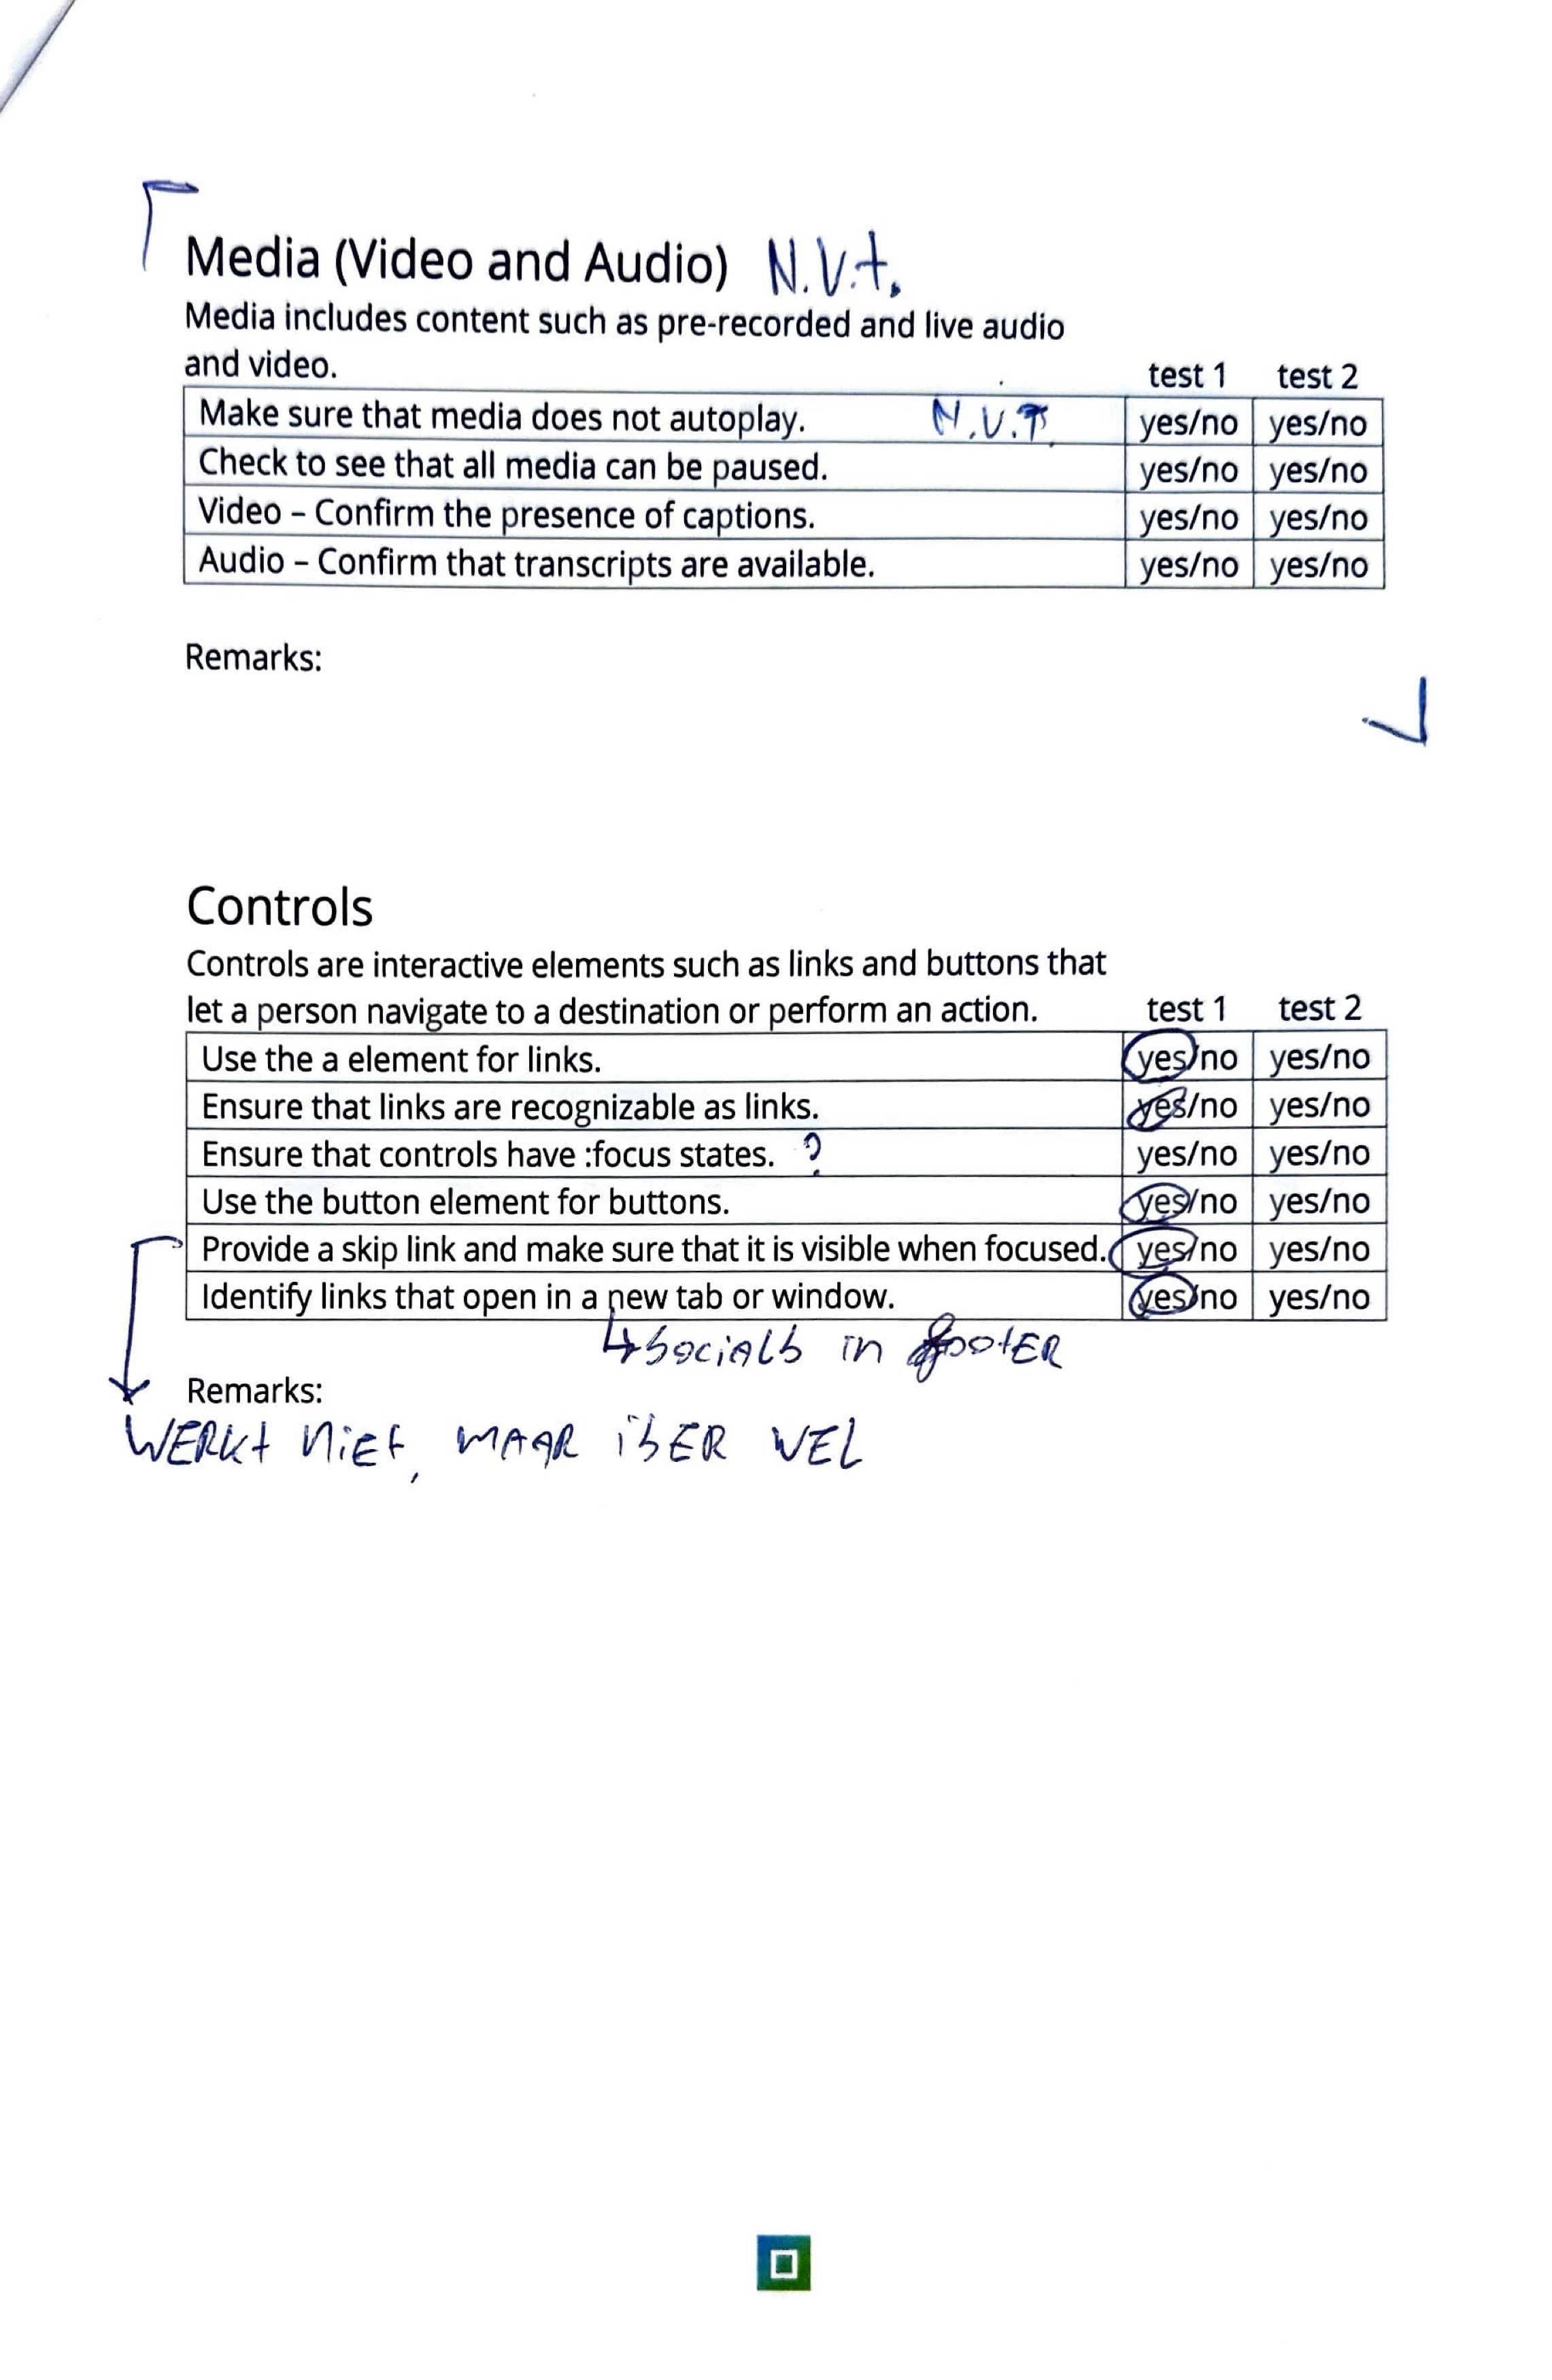 Media (Video and Audio) N.V.t.
Media includes content such as pre-recorded and live audio
and video. test 1 test 2
Make sure that media does not autoplay. N.V.T. yes/no yes/no
Check to see that all media can be paused. yes/no yes/no
Video – Confirm the presence of captions. yes/no yes/no
Audio – Confirm that transcripts are available. yes/no yes/no
Remarks:
Controls
Controls are interactive elements such as links and buttons that
let a person navigate to a destination or perform an action. test 1 test 2
Use the a element for links. yes/no yes/no
Ensure that links are recognizable as links. yes/no yes/no
Ensure that controls have :focus states. ? yes/no yes/no
Use the button element for buttons. yes/no yes/no
Provide a skip link and make sure that it is visible when focused. yes/no yes/no
Identify links that open in a new tab or window. yes/no yes/no
↳ socials in footER
Remarks:
WERKt niEt, MAAR isER WEL